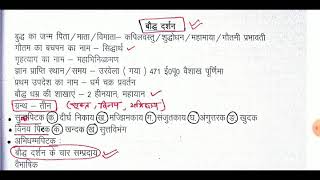 बौद्ध दर्शन
बुद्ध का जन्म पिता/माता/विमाता– कपिलवस्तु/शुद्धोधन/महामाया/गौतमी प्रभावती
गौतम का बचपन का नाम – सिद्धार्थ
गृहत्याग का नाम – महाभिनिष्क्रमण
ज्ञान प्राप्ति स्थान/समय – उरवेला ( गया ) 471 ई0पू0 वैशाख पूर्णिमा
प्रथम उपदेश का नाम – धर्म चक्र प्रवर्तन
बौद्ध धर्म की शाखाएं - 2 हीनयान, महायान
ग्रन्थ – तीन
सुत्तपिटक क. दीर्घ निकाय ख. मज्झिमकाय ग. संजुतकाय घ. अंगुत्तरक ङ. खुदक
विनय पिटक क खन्दक ख सुत्तविभंग
अभिधम्मपिटक :
बौद्ध दर्शन के चार सम्प्रदाय
वैभाषिक